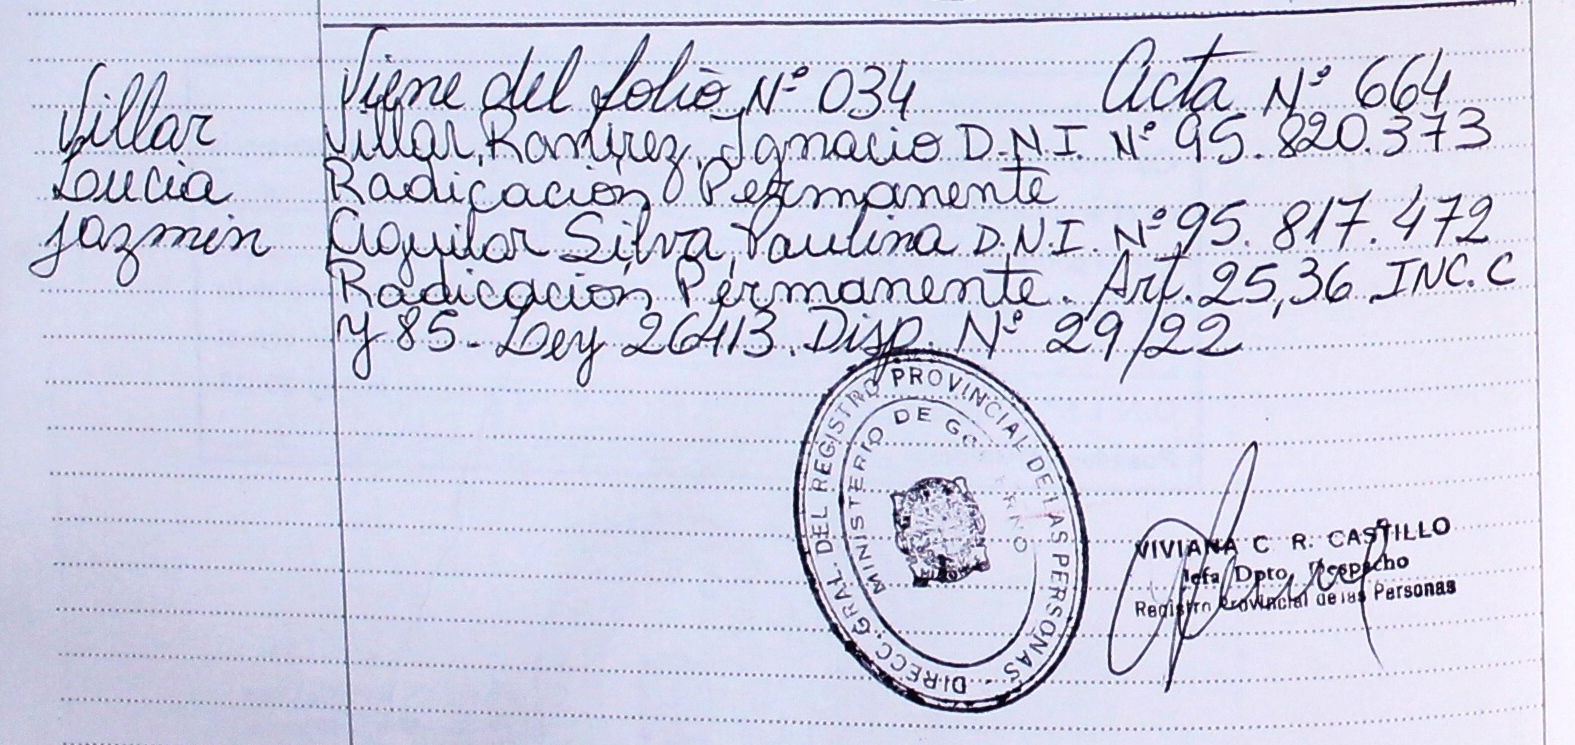 Viene del folio N° 034 Acta N° 664
Villar
Lucia
Jazmin
Villar Ramirez, Ignacio D.N.I. N° 95.820.373
Radicacion Permanente
Aguilar Silva, Paulina D.N.I. N° 95.817.472
Radicacion Permanente. Art. 25,36 INC. C
y 85 - Ley 26413. Disp. N° 29/22
DIRECC. GRAL. DEL REGISTRO PROVINCIAL DE LAS PERSONAS
MINISTERIO DE GOBIERNO
VIVIANA C R. CASTILLO
Jefa Dpto. Despacho
Registro Provincial de las Personas